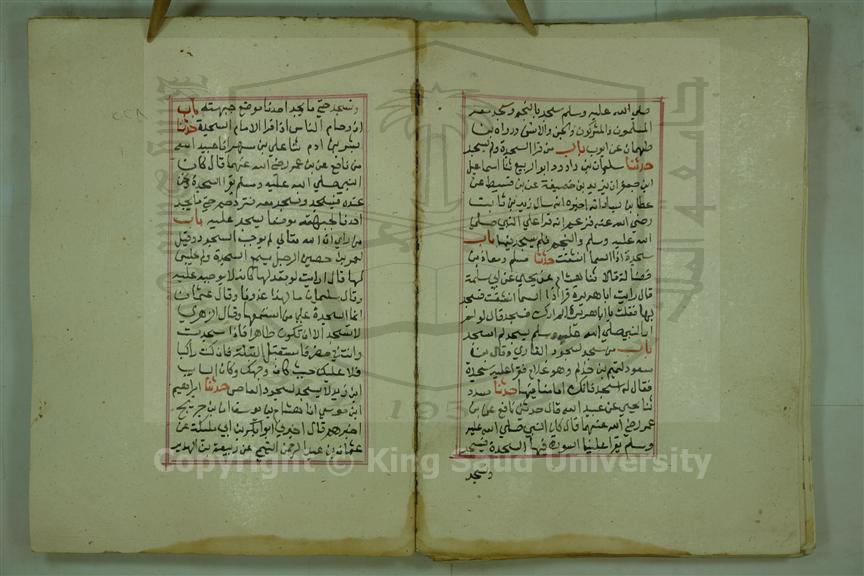 صلى الله عليه وسلم سجد بالنجم وسجد معه
المسلمون والمشركون والجن والانس ورواه بن
طهمان عن ايوب باب من قرا السجدة ولم يسجد
حدثنا سليمان بن داود ابو الربيع ثنا اسماعيل
ابن جعفر انا يزيد بن خصيفة عن بن قسيط عن
عطا بن يسار انه اخبره انه سال زيد بن ثابت
رضي الله عنه فزعم انه قرا على النبي صلى
الله عليه وسلم والنجم فلم يسجد فيها باب
سجدة اذا السما انشقت حدثنا مسلم ومعاذ بن
فضالة قالا ثنا هشام عن يحيى عن ابي سلمة
قال رايت ابا هريرة قرا اذا السما انشقت فسجد
بها فقلت يا ابا هريرة الم ارك تسجد قال لو لم ار
النبي صلى الله عليه وسلم يسجد لم اسجد
باب من سجد لسجود القاري وقال بن
مسعود لتميم بن حذلم وهو غلام فقرا عليه سجدة
فقال اسجد فانك امامنا فيها حدثنا مسدد
ثنا يحيى عن عبيد الله قال حدثني نافع عن بن
عمر رضي الله عنهما قال كان النبي صلى الله عليه
وسلم يقرا علينا السورة فيها السجدة فيسجد
ونسجد
ونسجد حتى ما يجد احدنا موضع جبهته باب
ازدحام الناس اذا قرا الامام السجدة حدثنا
بشر بن ادم ثنا علي بن مسهر انا عبيد الله
عن نافع عن بن عمر رضي الله عنهما قال كان
النبي صلى الله عليه وسلم يقرا السجدة ونحن
عنده فيسجد ونسجد معه فنزدحم حتى ما يجد
احدنا لجبهته موضعا يسجد عليه باب
من راي ان الله تعالى لم يوجب السجود وقيل
لعمران بن حصين الرجل يسمع السجدة ولم يجلس
لها قال ارايت لو قعد لها كانه لا يوجبه عليه
وقال سلمان ما لهذا غدونا وقال عثمان
انما السجدة على من استمعها وقال الزهري
لا تسجد الا ان تكون طاهرا فاذا سجدت
وانت في حضر فاستقبل القبلة فان كنت راكبا
فلا عليك حيث كان وجهك وكان السايب
ابن يزيد لا يسجد لسجود القاص حدثنا ابراهيم
ابن موسى انا هشام بن يوسف ان بن جريج
اخبرهم قال اخبرني ابو بكر بن ابي مليكة عن
عثمان بن عبد الرحمن التيمي عن ربيعة بن الهدير
Copyright © King Saud University